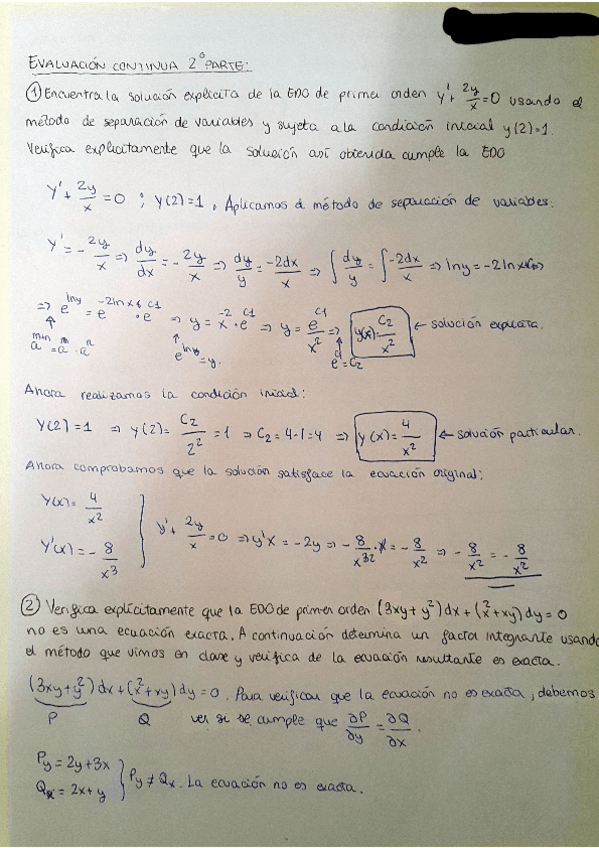 EVALUACIÓN CONTINUA 2º PARTE:
① Encuentra la solución explícita de la EDO de primer orden y' + 2y/x = 0 usando el
método de separación de variables y sujeta a la condición inicial y(2)=1.
Verifica explícitamente que la solución así obtenida cumple la EDO
y' + 2y/x = 0 ; y(2)=1. Aplicamos el método de separación de variables.
y' = -2y/x => dy/dx = -2y/x => dy/y = -2dx/x => ∫ dy/y = ∫ -2dx/x => ln y = -2 ln x
=> e^(ln y) = e^(-2 ln x) · e^(C1) => y = x^(-2) · e^(C1) => y = e^(C1)/x^2 => y(x) = C2/x^2 ← solución explícita.
a^(m+n) = a^m · a^n e^(ln y) = y. e^(C1) = C2
Ahora realizamos la condición inicial:
y(2)=1 => y(2) = C2/2^2 = 1 => C2 = 4·1 = 4 => y(x) = 4/x^2 ← solución particular.
Ahora comprobamos que la solución satisface la ecuación original:
y(x) = 4/x^2
y'(x) = -8/x^3 } y' + 2y/x = 0 => y'x = -2y => -8/x^3 · x = -8/x^2 => -8/x^2 = -8/x^2
② Verifica explícitamente que la EDO de primer orden (3xy + y^2) dx + (x^2 + xy) dy = 0
no es una ecuación exacta. A continuación determina un facto integrante usando
el método que vimos en clase y verifica de la ecuación resultante es exacta.
(3xy + y^2) dx + (x^2 + xy) dy = 0. Para verificar que la ecuación no es exacta, debemos
P Q ver si se cumple que ∂P/∂y = ∂Q/∂x.
Py = 2y + 3x
Qx = 2x + y } Py ≠ Qx. La ecuación no es exacta.